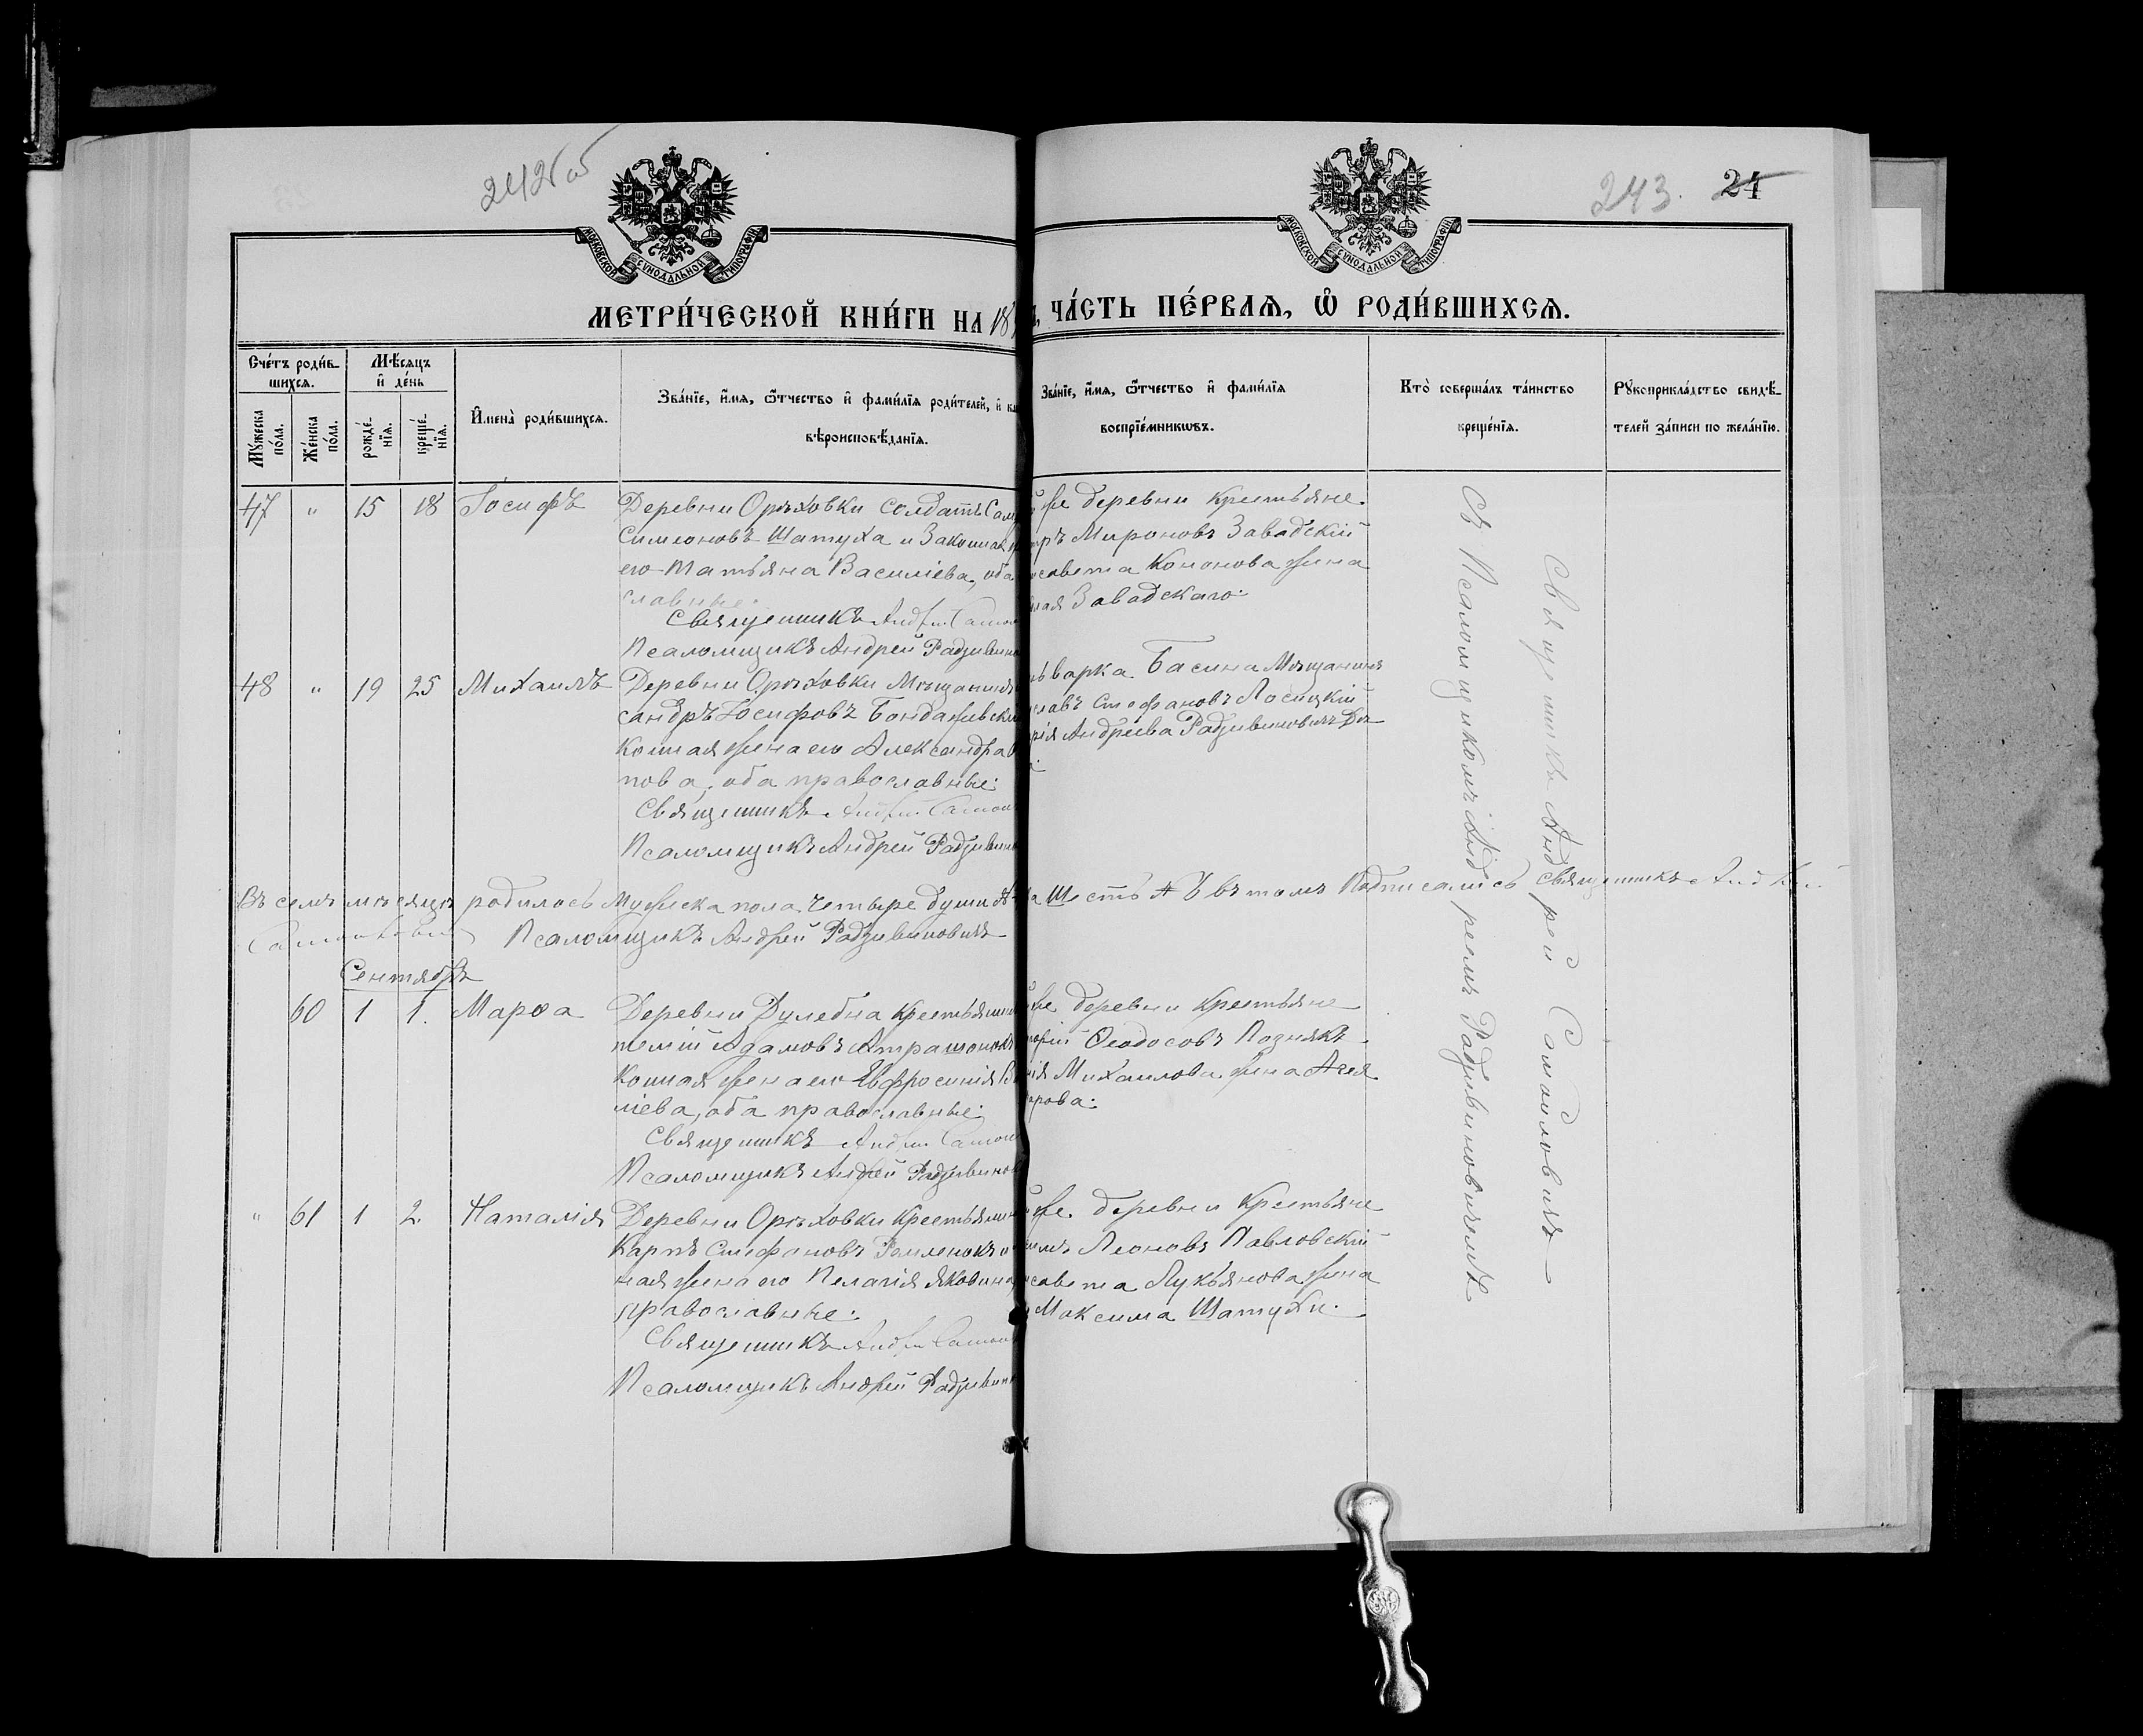 242 об
243. 24
МОСКОВСКОЙ СѴНОДАЛЬНОЙ ТИПОГРАФІИ
МОСКОВСКОЙ СѴНОДАЛЬНОЙ ТИПОГРАФІИ
МЕТРИ́ЧЕСКОЙ КНИ́ГИ НА 18
ЧА́СТЬ ПЕ́РВАѦ, Ѽ РОДИ́ВШИХСѦ.
Сче́тъ роди́в-
шихсѧ.
Мꙋ́жеска по́ла.
Же́нска по́ла.
Мѣ́сѧцъ
и҆ де́нь
рожде́-
нїѧ.
креще́-
нїѧ.
И҆мена̀ роди́вшихсѧ.
Зва́нїе, и҆́мѧ, ѻ҆́тчество и҆ фами́лїѧ роди́телей, и҆
вѣроисповѣ́данїѧ.
Зва́нїе, и҆́мѧ, ѻ҆́тчество и҆ фами́лїѧ
воспрїе́мникѡвъ.
Кто̀ соверша́лъ та́инство
креще́нїѧ.
Рꙋкоприкла́дство свидѣ́-
телей за́писи по жела́нїю.
47 " 15 18 Іосифъ
Деревни Орѣховки солдатъ Сам
Симеоновъ Шатуха и Законная
его Татьяна Василіева, оба
славные.
Священникъ Андрей Самой
Псаломщикъ Андрей Радзивино
же деревни крестьяне
Мироновъ Завадскій
Кононова жена
Завадскаго.
48 " 19 25 Михаилъ
Деревни Орѣховки Мѣщанинъ
сандръ Іосифовъ Бондажевскі
конная жена его Александра
пова, оба православные.
Священникъ Андрей Самой
Псаломщикъ Андрей Радзивин
варка Басина Мѣщанинъ
славъ Стефановъ Лосицкій
рія Андреева Радзивиновичъ Дѣ
Въ семъ мѣсяцѣ родилось Мужеска пола четыре души
Шесть въ томъ Подписались Священникъ Андрей
Самойлович Псаломщикъ Андрей Радзивиновичъ
Сентябрь
60 1 1. Марѳа
Деревни Дулебна крестьянин
темій Адамовъ Атрашонокъ
конная жена его Евфросинія В
ліева, оба православные.
Священникъ Андрей Самой
Псаломщикъ Андрей Радзивинов
же деревни Крестьяне
Ѳеодосовъ Познякъ
Михаилова жена
" 61 1 2. Наталія
Деревни Орѣховки Крестьянин
Карпъ Стефановъ Ромленокъ
ная жена его Пелагія Яковина
православные.
Священникъ Андрей Самой
Псаломщикъ Андрей Радзивин
же деревни Крестьяне
Леоновъ Павловскій
савета Лукьянова жена
Максима Шатухи.
Священникъ Андрей Самойловичъ
Съ Псаломщикомъ Андреемъ Радзивиновичемъ